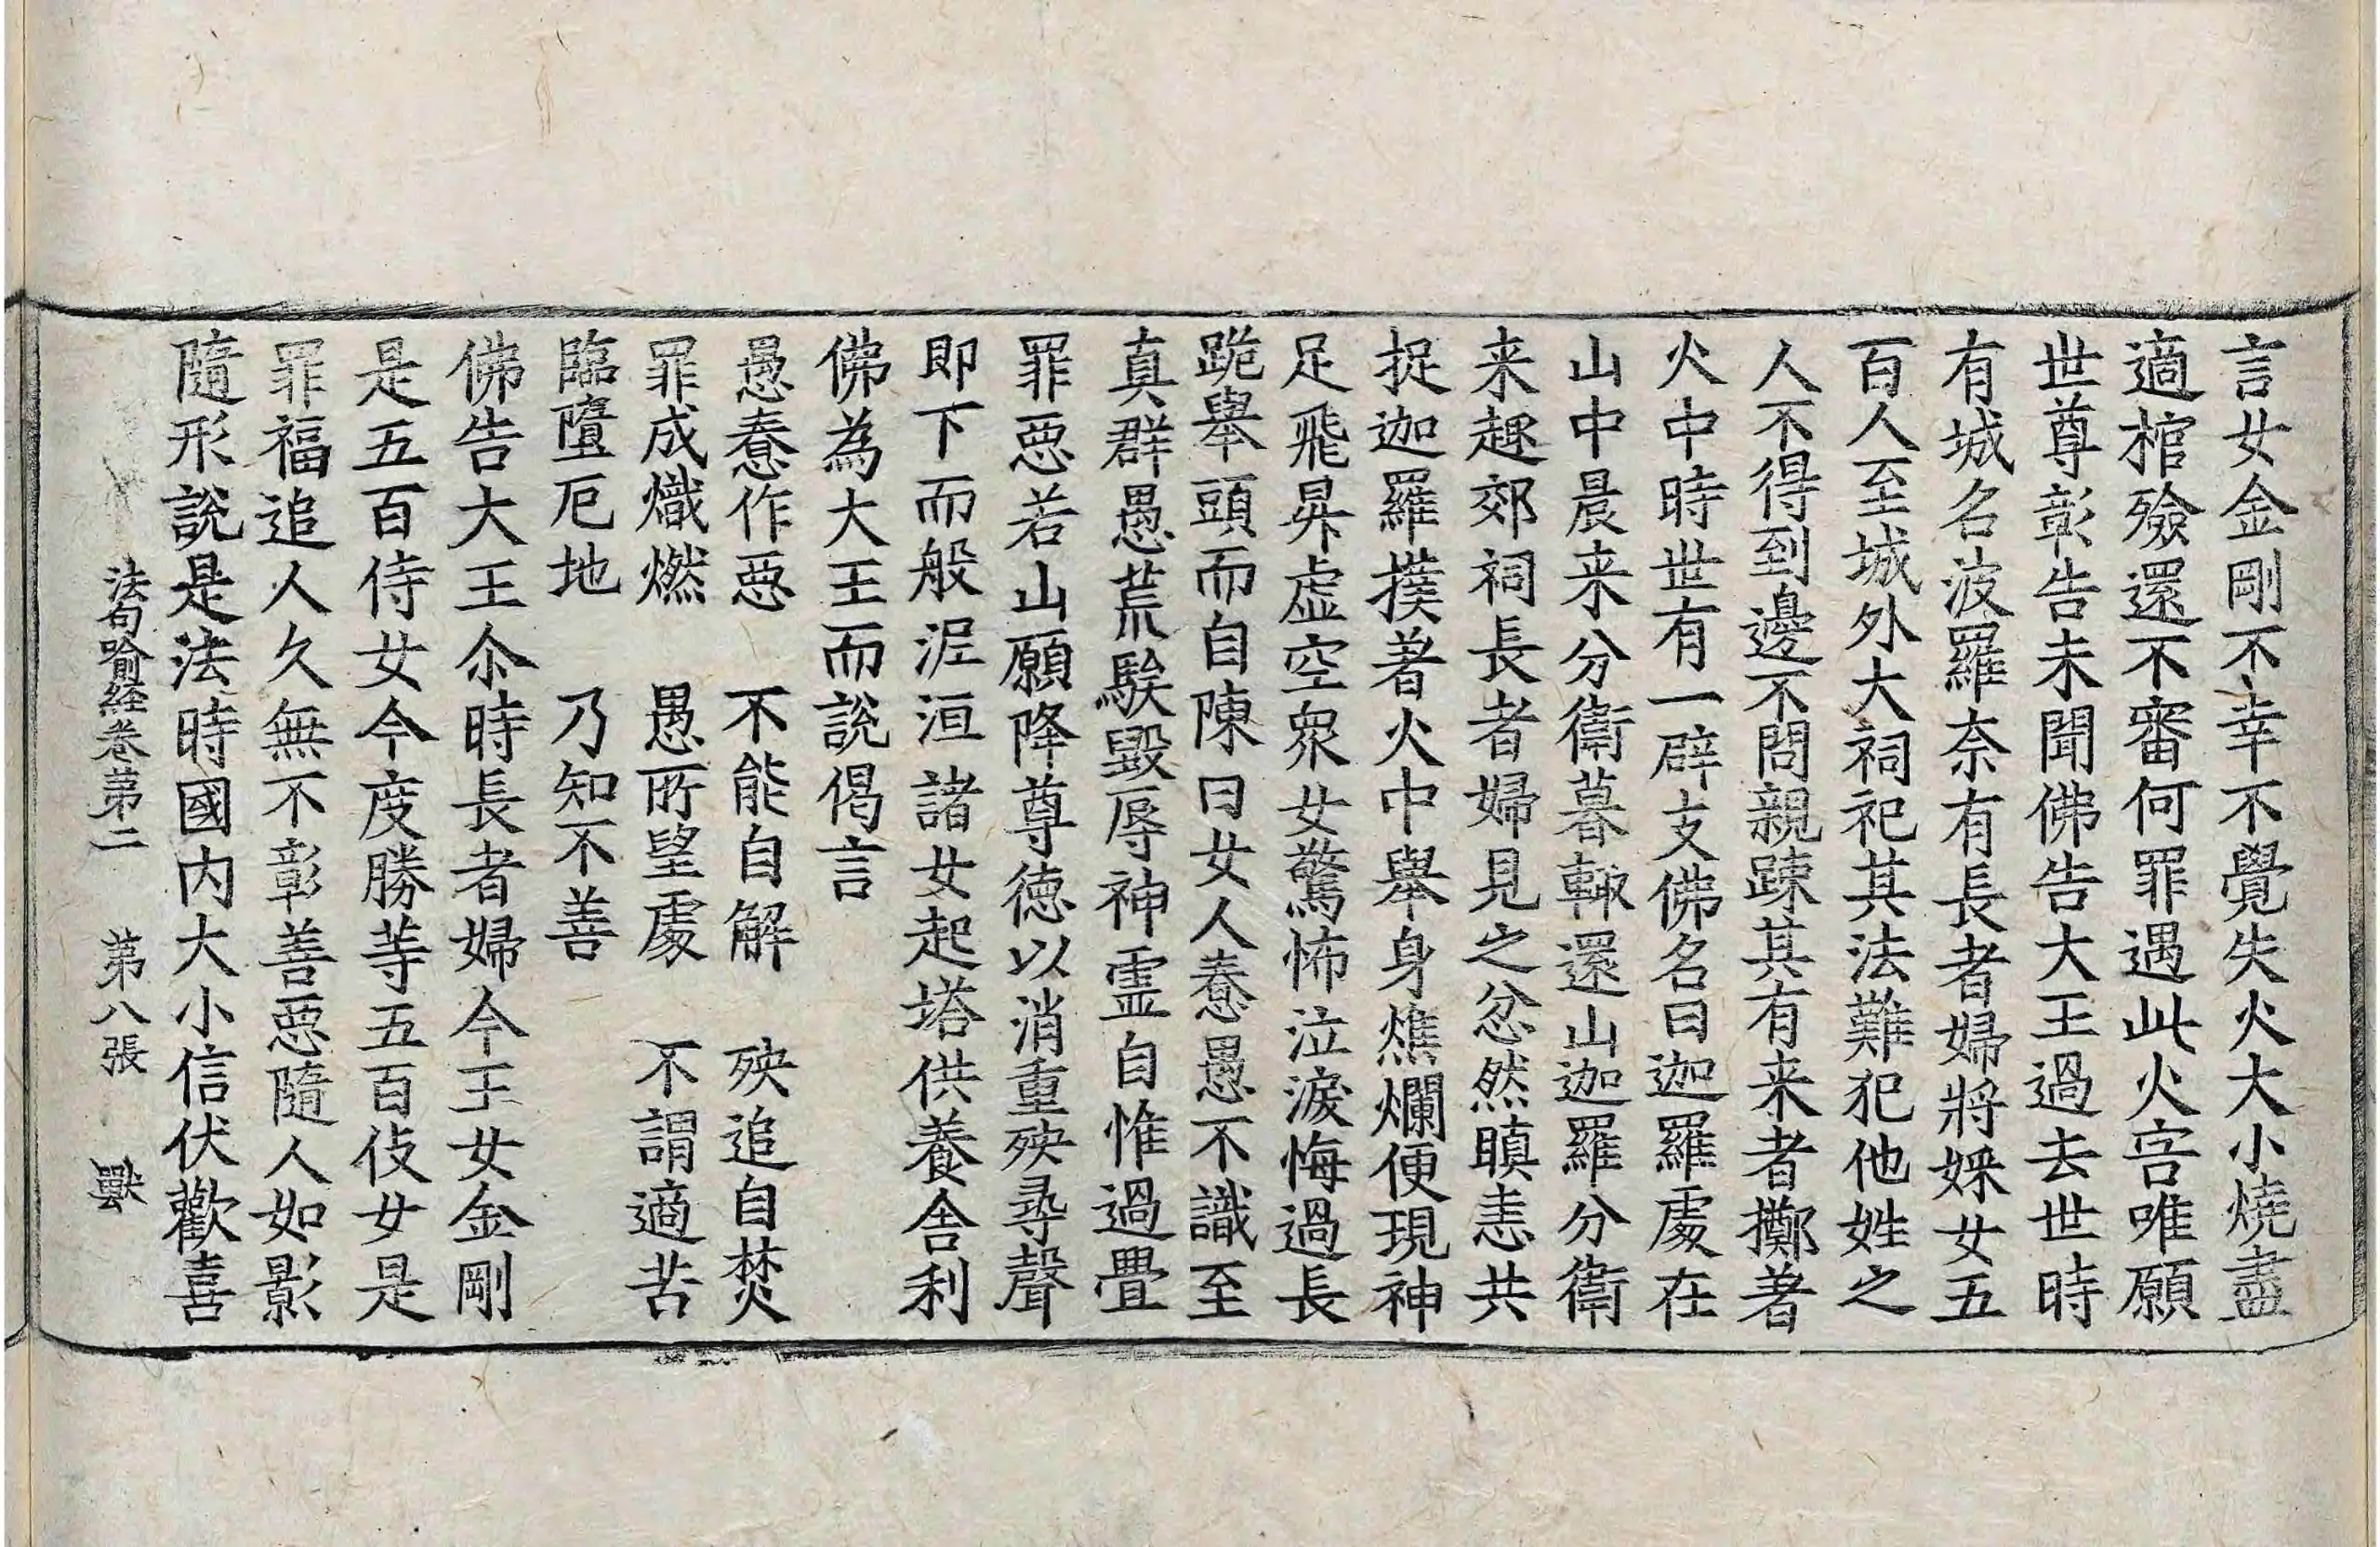 言女金剛不幸不覺失火大小燒盡
適棺殮還不審何罪遇此火害唯願
世尊彰告未聞佛告大王過去世時
有城名波羅奈有長者婦將婇女五
百人至城外大祠祀其法難犯他姓之
人不得到邊不問親踈其有来者擲著
火中時世有一辟支佛名曰迦羅處在
山中晨来分衞暮輙還山迦羅分衞
来趣郊祠長者婦見之忿然瞋恚共
捉迦羅撲著火中舉身燋爛便現神
足飛昇虛空衆女驚怖泣淚悔過長
跪舉頭而自陳曰女人惷愚不識至
真群愚荒騃毀辱神靈自惟過疊
罪惡若山願降尊德以消重殃尋聲
即下而般泥洹諸女起塔供養舍利
佛為大王而說偈言
愚惷作惡　不能自解　殃追自焚
罪成熾燃　愚所望處　不謂適苦
臨墮厄地　乃知不善
佛告大王尒時長者婦今王女金剛
是五百侍女今度勝等五百伎女是
罪福追人久無不彰善惡隨人如影
隨形說是法時國內大小信伏歡喜
法句喻経卷第二　第八張